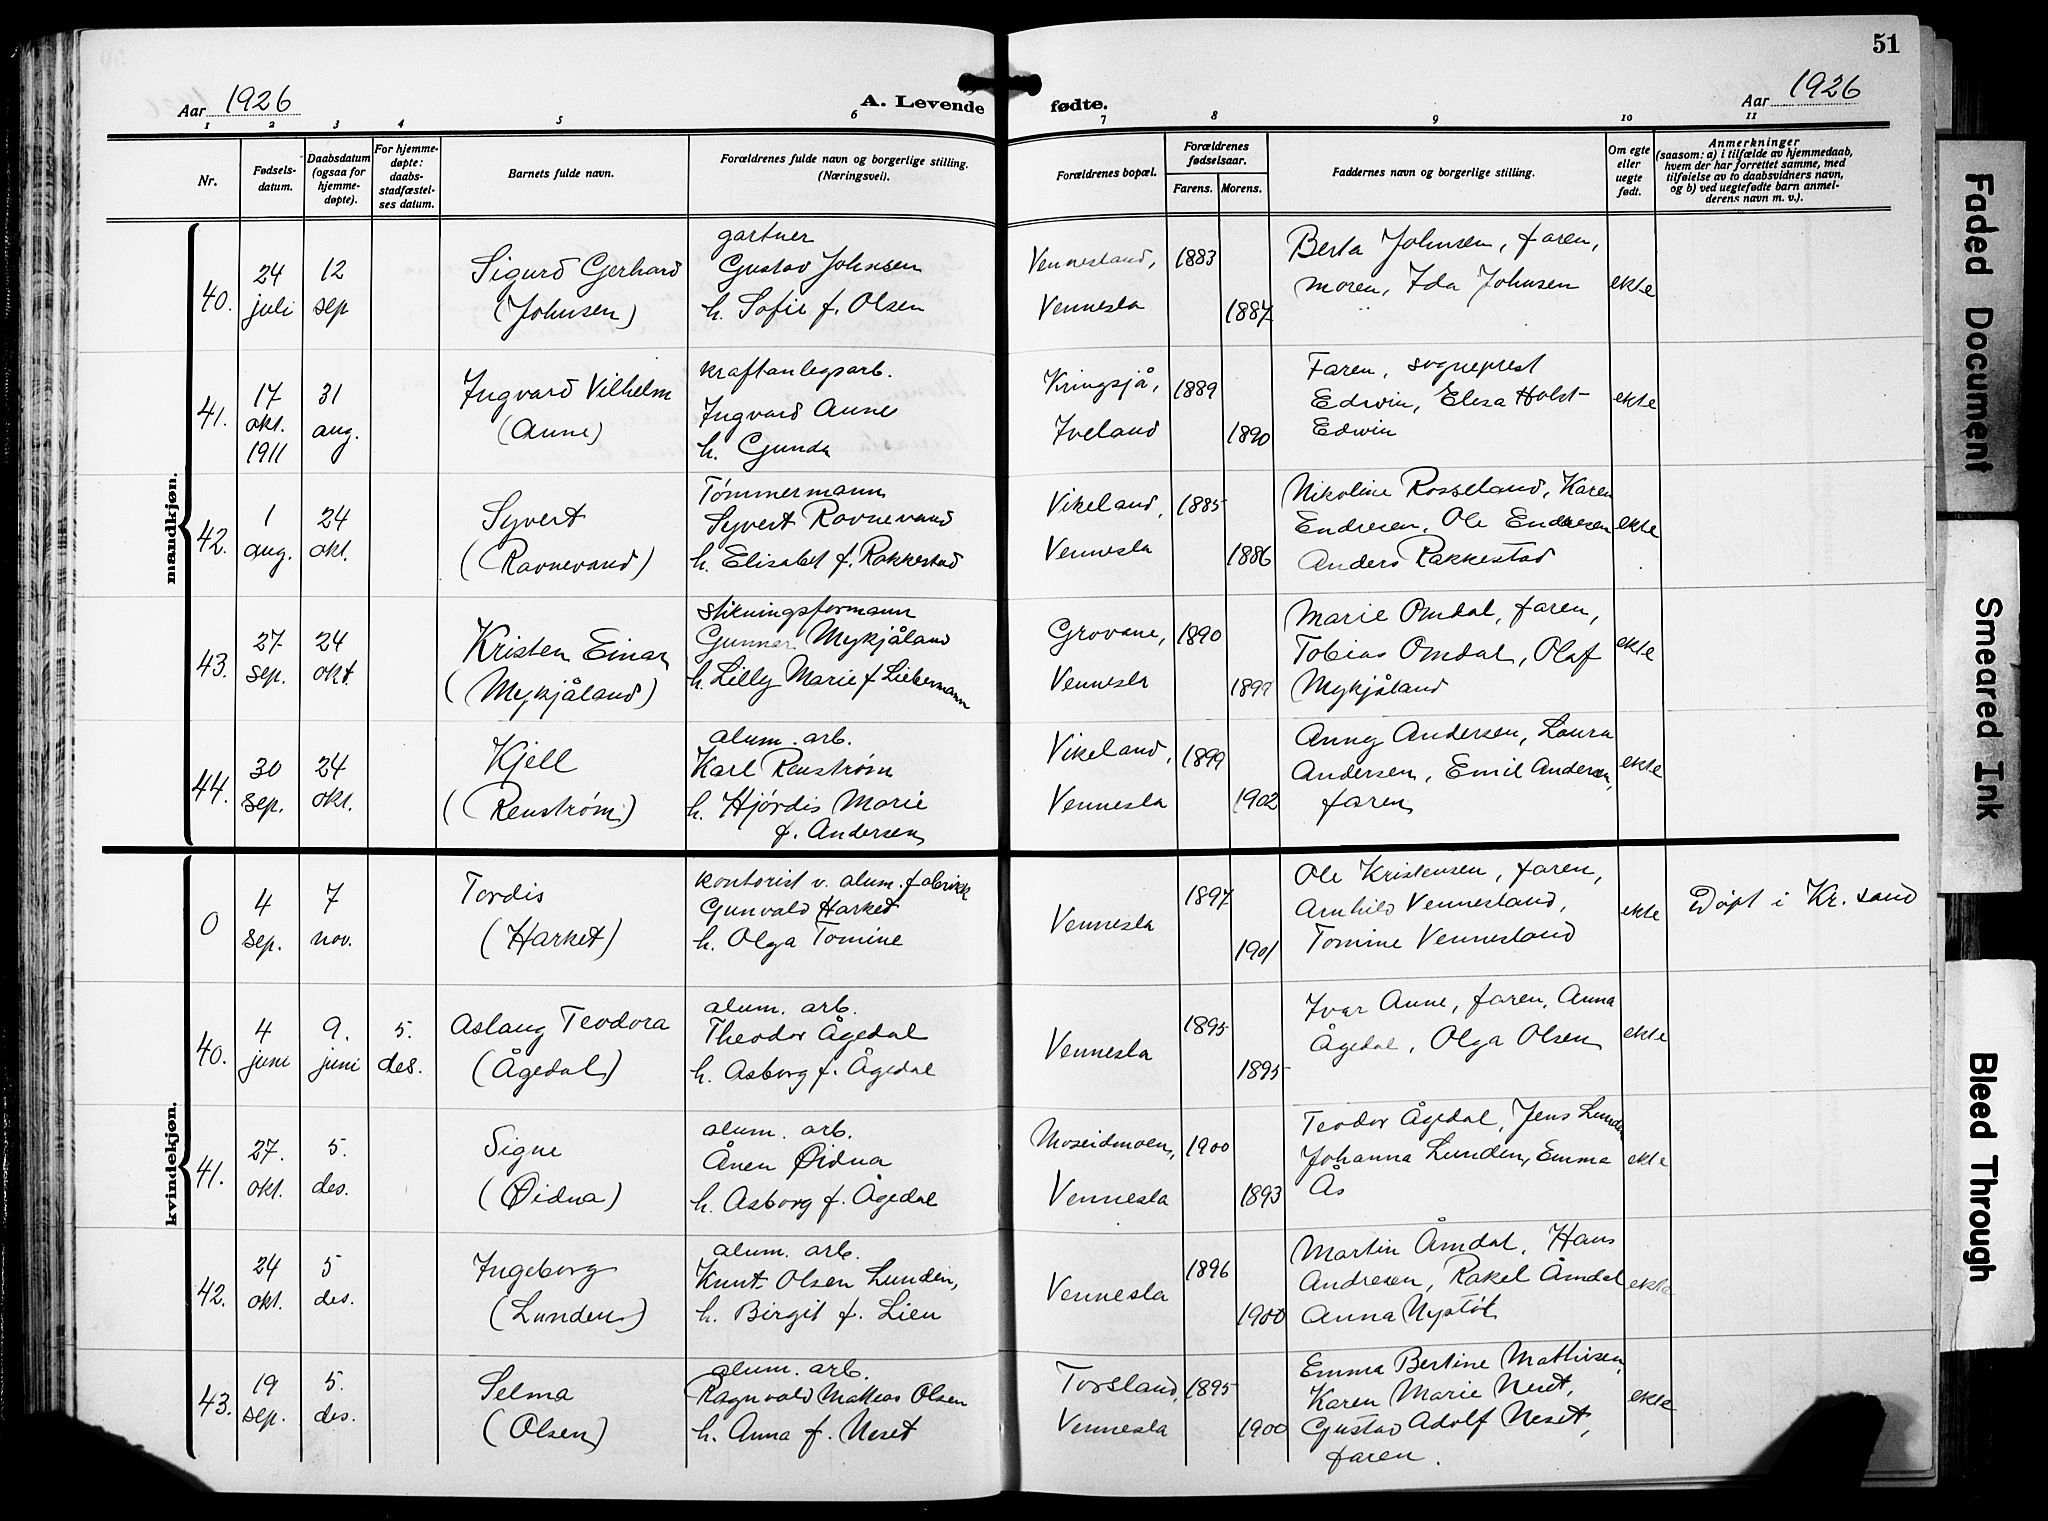 51
Aar 1926
A. Levende fødte.
Aar 1926
1 2 3 4 5 6 7 8 9 10 11
Nr.
Fødsels-
datum.
Daabsdatum
(ogsaa for
hjemme-
døpte).
For hjemme-
døpte:
daabs-
stadfæstel-
ses datum.
Barnets fulde navn.
Forældrenes fulde navn og borgerlige stilling.
(Næringsvei).
Forældrenes bopæl.
Forældrenes
fødselsaar.
Farens. Morens.
Faddernes navn og borgerlige stilling.
Om egte
eller
uegte
født.
Anmerkninger
(saasom: a) i tilfælde av hjemmedaab,
hvem der har forrettet samme, med
tilføielse av to daabsvidners navn,
og b) ved uegtefødte barn anmel-
derens navn m. v.).
mandkjøn.
40.
24
juli
12
sep
Sigurd Gerhard
(Johnsen)
gartner
Gustav Johnsen
h. Sofie f. Olsen
Vennesland,
Vennesla
1883
1887
Berta Johnsen, faren,
moren, Ida Johnsen
ekte
41.
17
okt.
1911
31
aug.
Ingvard Vilhelm
(Aune)
kraftanlegsarb.
Ingvard Aunes
h. Gunda
Kringsjå,
Iveland
1889
1890
Faren, sogneprest
Edwin, Elisa Holst-
Edwin
ekte
42.
1
aug.
24
okt.
Syvert
(Ravnevand)
Tømmermann
Syvert Ravnevand
h. Elisabet f. Rakkestad
Vikeland,
Vennesla
1885
1886
Nikoline Rosseland, Karen
Endresen, Ole Endresen
Anders Rakkestad
ekte
43.
27
sep.
24
okt.
Kristen Einar
(Mykjåland)
stikningsformann
Gunnar Mykjåland
h. Lilly Marie f Liebermann
Grovane,
Vennesla
1890
1899
Marie Omdal, faren,
Tobias Omdal, Olaf
Mykjåland
ekte
44.
30
sep.
24
okt.
Kjell
(Renstrøm)
alum. arb.
Karl Renstrøm
h. Hjørdis Marie
f. Andersen
Vikeland,
Vennesla
1899
1902
Anny Andersen, Laura
Andersen, Emil Andersen,
faren
ekte
kvindekjøn.
0
4
sep.
7
nov.
Tordis
(Harket)
kontorist v. alum. fabrikk
Gunvald Harket
h. Olga Tomine
Vennesla
1897
1901
Ole Kristensen, faren,
Arnhild Vennesland,
Tomine Vennesland
ekte
Døpt i Kr.sand
40.
4
juni
9.
juni
5.
des.
Aslaug Teodora
(Ågedal)
alum. arb.
Theodor Ågedal
h. Asborg f. Ågedal
Vennesla
1895
1895
Ivar Aune, faren, Anna
Ågedal, Olga Olsen
ekte
41.
27.
okt.
5.
des.
Signe
(Øidna)
alum. arb.
Ånen Øidna
h. Asborg f. Ågedal
Moseidmoen,
Vennesla
1900
1893
Teodor Ågedal, Jens Lunden
Johanna Lunden, Emma
Ås
ekte
42.
24
okt.
5
des.
Ingeborg
(Lunden)
alum. arb.
Knut Olsen Lunden,
h. Birgit f. Lien
Vennesla
1896
1900
Martin Åmdal, Hans
Andresen, Rakel Åmdal
Anna Nystøl
ekte
43.
19
sep.
5.
des.
Selma
(Olsen)
alum. arb.
Ragnvald Mathias Olsen
h. Anna f. Neset
Torsland,
Vennesla
1895
1900
Emma Bertine Mathisen,
Karen Marie Neset,
Gustav Adolf Neset,
faren.
ekte
Faded Document
Smeared Ink
Bleed Through